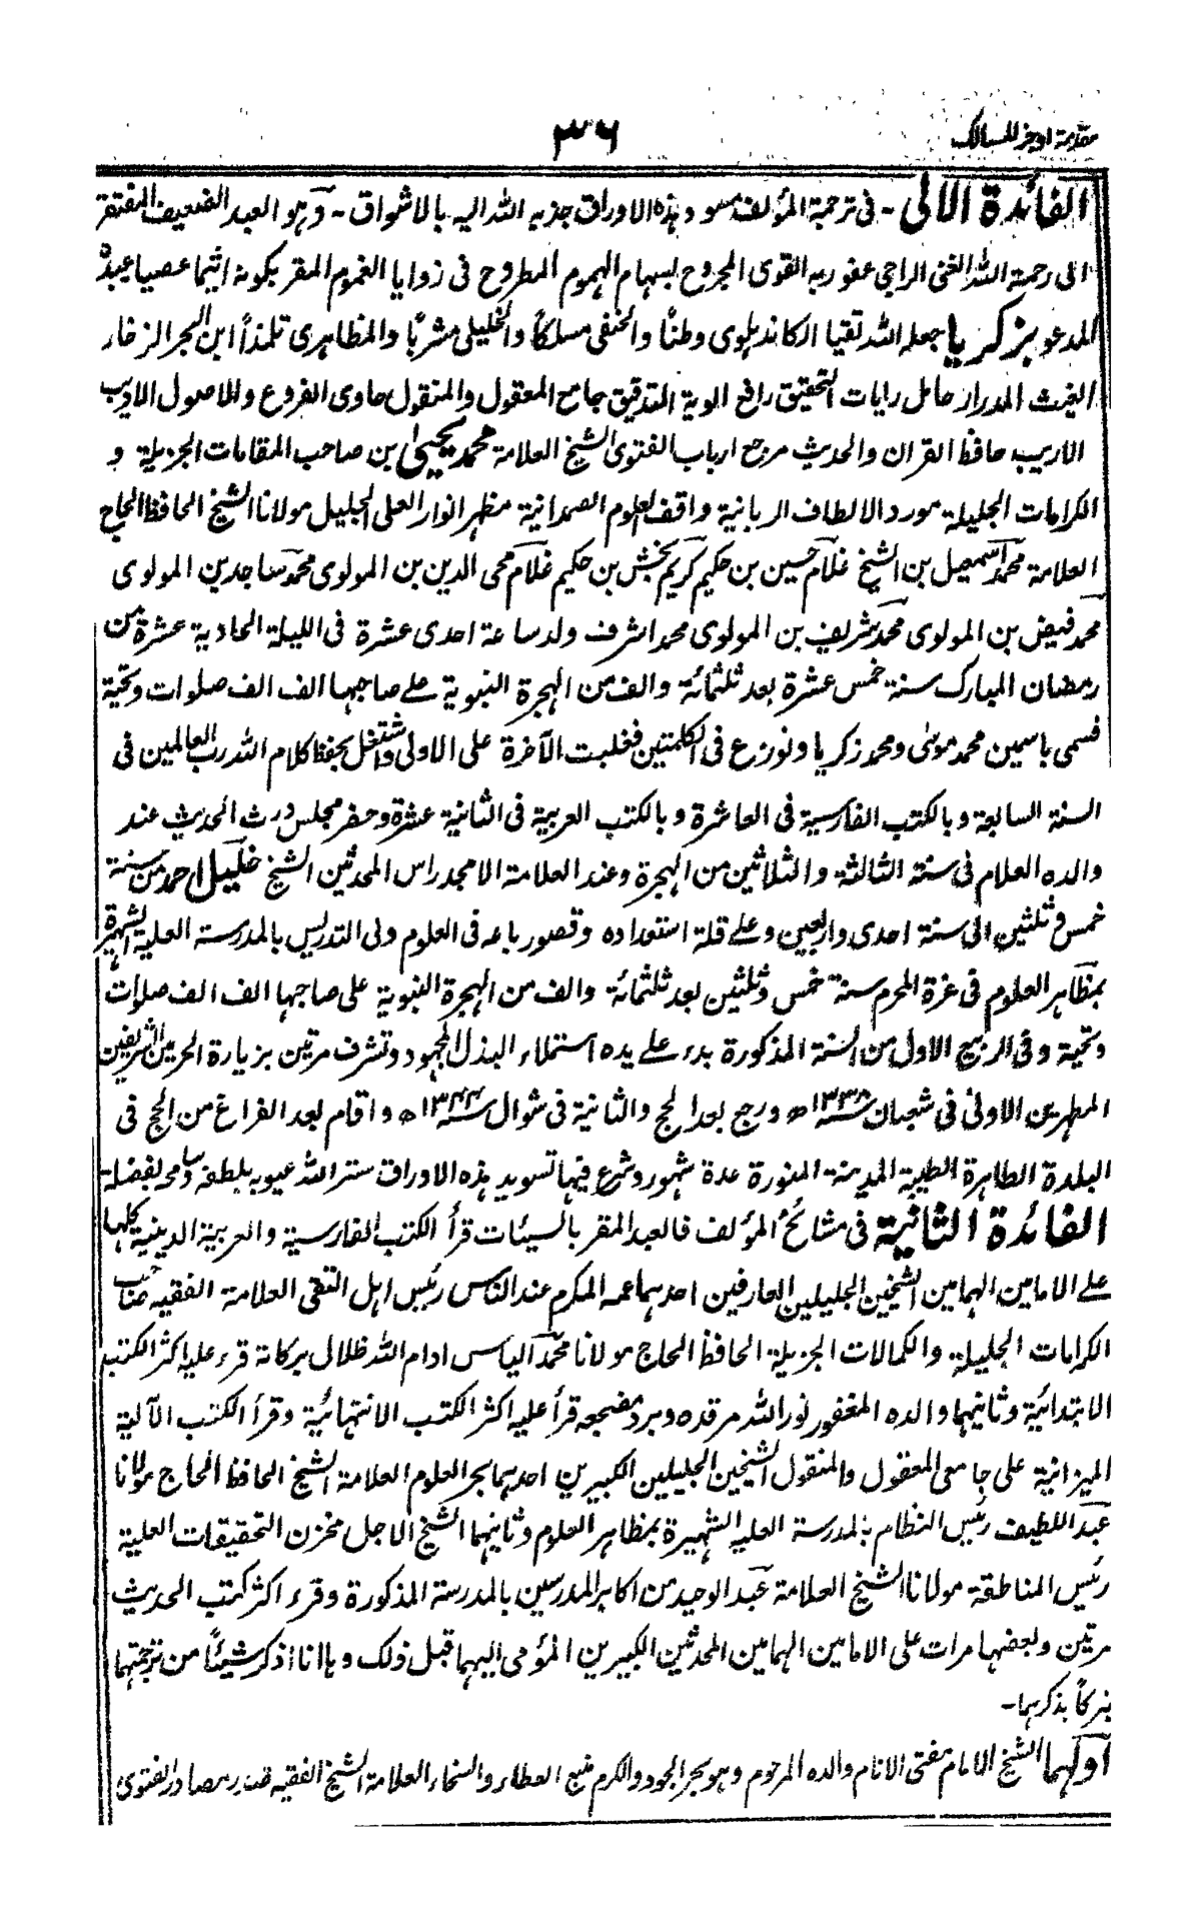 مقدمة اوجز المسالك
٣٦
الفائدة الاولى - فى ترجمة المؤلف مسود هذه الاوراق جذبه الله اليه بالاشواق - وهو العبد الضعيف المفتقر
الى رحمة الله الغنى الراجى عفو ربه القوى المجروح بسهام الهموم المطروح فى زوايا الغموم المقر بكونه اثيما عصيا عبده
المدعو بزكريا جعله الله تقيا الكاندهلوى وطنًا والحنفى مسلكاً والخليلى مشربًا والمظاهرى تلمذاً ابن البحر الزخار
الغيث المدرار حامل رايات التحقيق رافع الوية التدقيق جامع المعقول والمنقول حاوى الفروع والاصول الاديب
الاريب حافظ القران والحديث مرجع ارباب الفتوى الشيخ العلامة محمد يحيىٰ بن صاحب المقامات الجزيلة و
الكرامات الجليلة مورد الالطاف الربانية واقف العلوم الصمدانية مظهر انوار العلى الجليل مولانا الشيخ الحافظ الحاج
العلامة محمد اسمعيل بن الشيخ غلام حسين بن حكيم كريم بخش بن حكيم غلام محى الدين بن المولوى محمد ساجد بن المولوى
محمد فيض بن المولوى محمد شريف بن المولوى محمد اشرف ولد ساعة احدى عشرة فى الليلة الحادية عشرة من
رمضان المبارك سنة خمس عشرة بعد ثلثمائة والف من الهجرة النبوية على صاحبها الف الف صلوات وتحية
فسمى باسمين محمد موسىٰ ومحمد زكريا ونوزع فى الكلمتين فغلبت الآخرة على الاولى واشتغل بحفظ كلام الله رب العالمين فى
السنة السابعة وبالكتب الفارسية فى العاشرة وبالكتب العربية فى الثانية عشرة وحضر مجلس درث الحديث عند
والده العلام فى سنة الثالثة والثلاثين من الهجرة وعند العلامة الامجد راس المحدثين الشيخ خليل احمد من سنة
خمس وثلثين الى سنة احدى واربعين وعلى قلة استعداده وقصور باعه فى العلوم ولى التدريس بالمدرسة العلية الشهيرة
بمظاهر العلوم فى غرة المحرم سنة خمس وثلثين بعد ثلثمائة والف من الهجرة النبوية على صاحبها الف الف صلوات
وتحية وفى الربيع الاول من السنة المذكورة بدء على يده استملاء البذل المجهود وتشرف مرتين بزيارة الحرمين الشريفين
المطهرين الاولىٰ فى شعبان سنة ١٣٣٨ھ ورجع بعد الحج والثانية فى شوال سنة ١٣٤٤ھ واقام بعد الفراغ من الحج فى
البلدة الطاهرة الطيبة المدينة المنورة عدة شهور وشرع فيها تسويد هذه الاوراق ستر الله عيوبه بلطفه وسامحه بفضله -
الفائدة الثانية فى مشائخ المؤلف فالعبد المقر بالسيئات قرأ الكتب الفارسية والعربية الدينية كلها
على الامامين الهمامين الشيخين الجليلين العارفين احدهما عمه المكرم عند الناس رئيس اهل التقى العلامة الفقيه صاحب
الكرامات الجليلة والكمالات الجزيلة الحافظ الحاج مولانا محمد الياس ادام الله ظلال بركاته قرء عليه اكثر الكتب
الابتدائية وثانيهما والده المغفور نور الله مرقده وبرد مضجعه قرأ عليه اكثر الكتب الانتهائية وقرأ الكتب الآلية
الميزانية على جامعى المعقول والمنقول الشيخين الجليلين الكبيرين احدهما بحر العلوم العلامة الشيخ الحافظ الحاج مولانا
عبد اللطيف رئيس النظام بالمدرسة العليه الشهيرة بمظاهر العلوم وثانيهما الشيخ الاجل مخزن التحقيقات العلية
رئيس المناطقة مولانا الشيخ العلامة عبد الوحيد من اكابر المدرسين بالمدرسة المذكورة وقرء اكثر كتب الحديث
مرتين وبعضها مرات على الامامين الهمامين المحدثين الكبيرين المؤمى اليهما قبل ذلك وها انا اذكر شيئاً من ترجمتهما
تبركاً بذكرهما -
اولهما الشيخ الامام مفتى الانام والده المرحوم وهو بحر الجود والكرم منبع العطاء والسخاء العلامة الشيخ الفقيه مصادر الفتوى